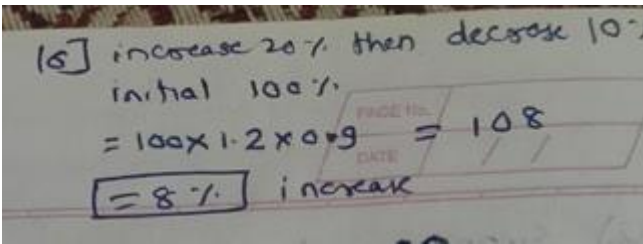 16] increase 20% then decrease 10%
initial 100%.
PAGE No.
= 100 x 1.2 x 0.9 = 108
DATE
= 8% increase